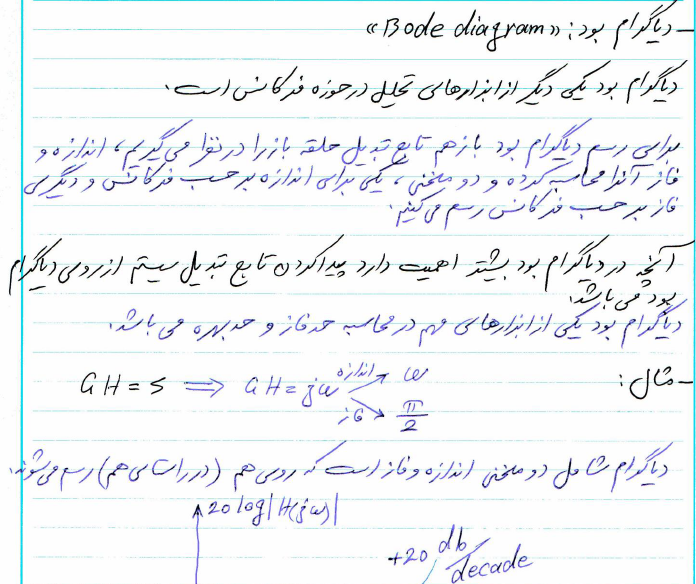 - دیاگرام بود: «Bode diagram»
دیاگرام بود یکی دیگر از ابزارهای تحلیل در حوزه فرکانس است.
برای رسم دیاگرام بود باز هم تابع تبدیل حلقه باز را در نظر می گیریم، اندازه و
فاز آنرا محاسبه کرده و دو منحنی، یکی برای اندازه بر حسب فرکانس و دیگری
فاز بر حسب فرکانس رسم می کنیم.
آنچه در دیاگرام بود بیشتر اهمیت دارد پیدا کردن تابع تبدیل سیستم از روی دیاگرام
بود می باشد.
دیاگرام بود یکی از ابزارهای مهم در محاسبه حد فاز و حد بهره می باشد.
- مثال: GH = s ⟹ GH = jω اندازه → ω
فاز → π/2
دیاگرام شامل دو منحنی اندازه و فاز است که روی هم (در راستای هم) رسم می شوند.
20 log|H(jω)|
+20 db/decade